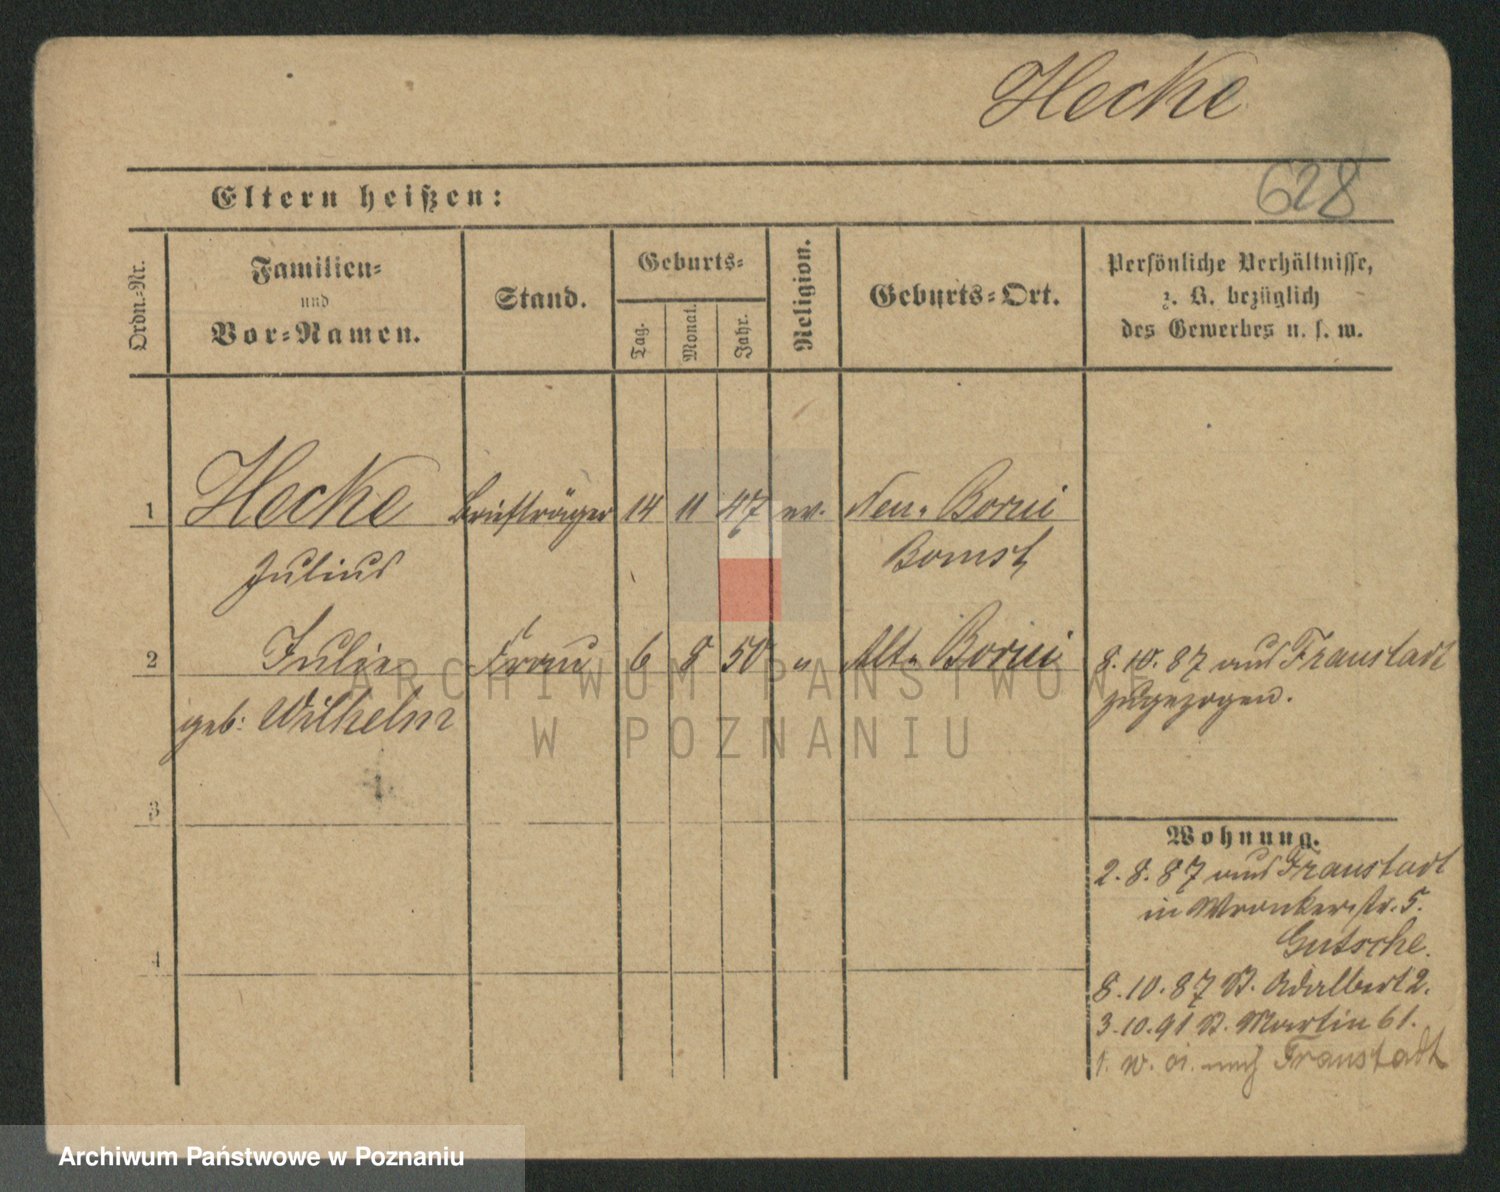 Hecke
628
Eltern heißen:
Ordn.-Nr.
Familien-
und
Vor-Namen.
Stand.
Geburts-
Tag.
Monat.
Jahr.
Religion.
Geburts-Ort.
Persönliche Verhältnisse,
z. B. bezüglich
des Gewerbes u. s. w.
1 Hecke Briefträger 14 11 47 ev. Neu-Borui
Julius Bomst
2 Julie Frau 6 8 50 " Alt-Borui 8.10.87 aus Fraustadt
geb: Wilhelm zugezogen.
3
4
Wohnung.
2.8.87 aus Fraustadt
in Wronkerstr. 5.
Gutsche.
8.10.87 St. Adalbert 2.
3.10.91 St. Martin 61.
nach Fraustadt
ARCHIWUM PAŃSTWOWE
W POZNANIU
Archiwum Państwowe w Poznaniu